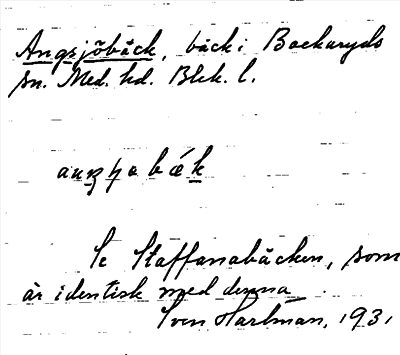 Angsjöbäck, bäck i Backaryds
sn. Med. hd. Blek. l.
Se Staffansbäcken, som
är identisk med denna.
Sven Hartman, 1931